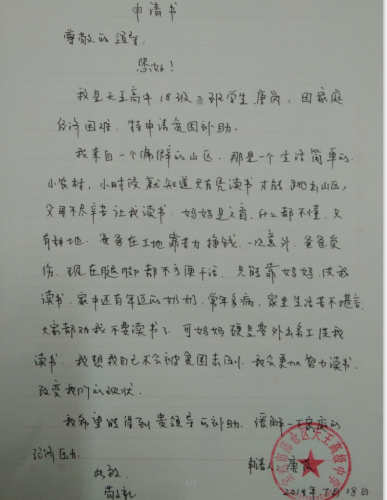 申请书
尊敬的领导:
您好!
我是天王高中18级 班学生,康岗,因家庭
经济困难,特申请贫困补助。
我来自一个偏僻的山区,那是一个生活简单的
小农村,小时候就知道只有凭读书才能跳出山区,
父母不尽辛苦让我读书。妈妈是文盲,什么都不懂,只
有种地。爸爸在工地靠苦力挣钱,一次意外,爸爸受
伤,现在腿脚都不方便干活,只能靠妈妈,供我
读书。家中还有年迈的奶奶,常年多病,家里生活苦不堪言,
大家都劝我不要读书了,可妈妈硬是要外出务工供我
读书。我想我自己不会被贫困击倒,我会更加努力读书,
改变我们的现状。
我希望能得到贵领导 补助,缓解一下家庭的
经济压力。
此致
敬礼
申请人:康岗
2018年 月18日
陈仓区天王高级中学